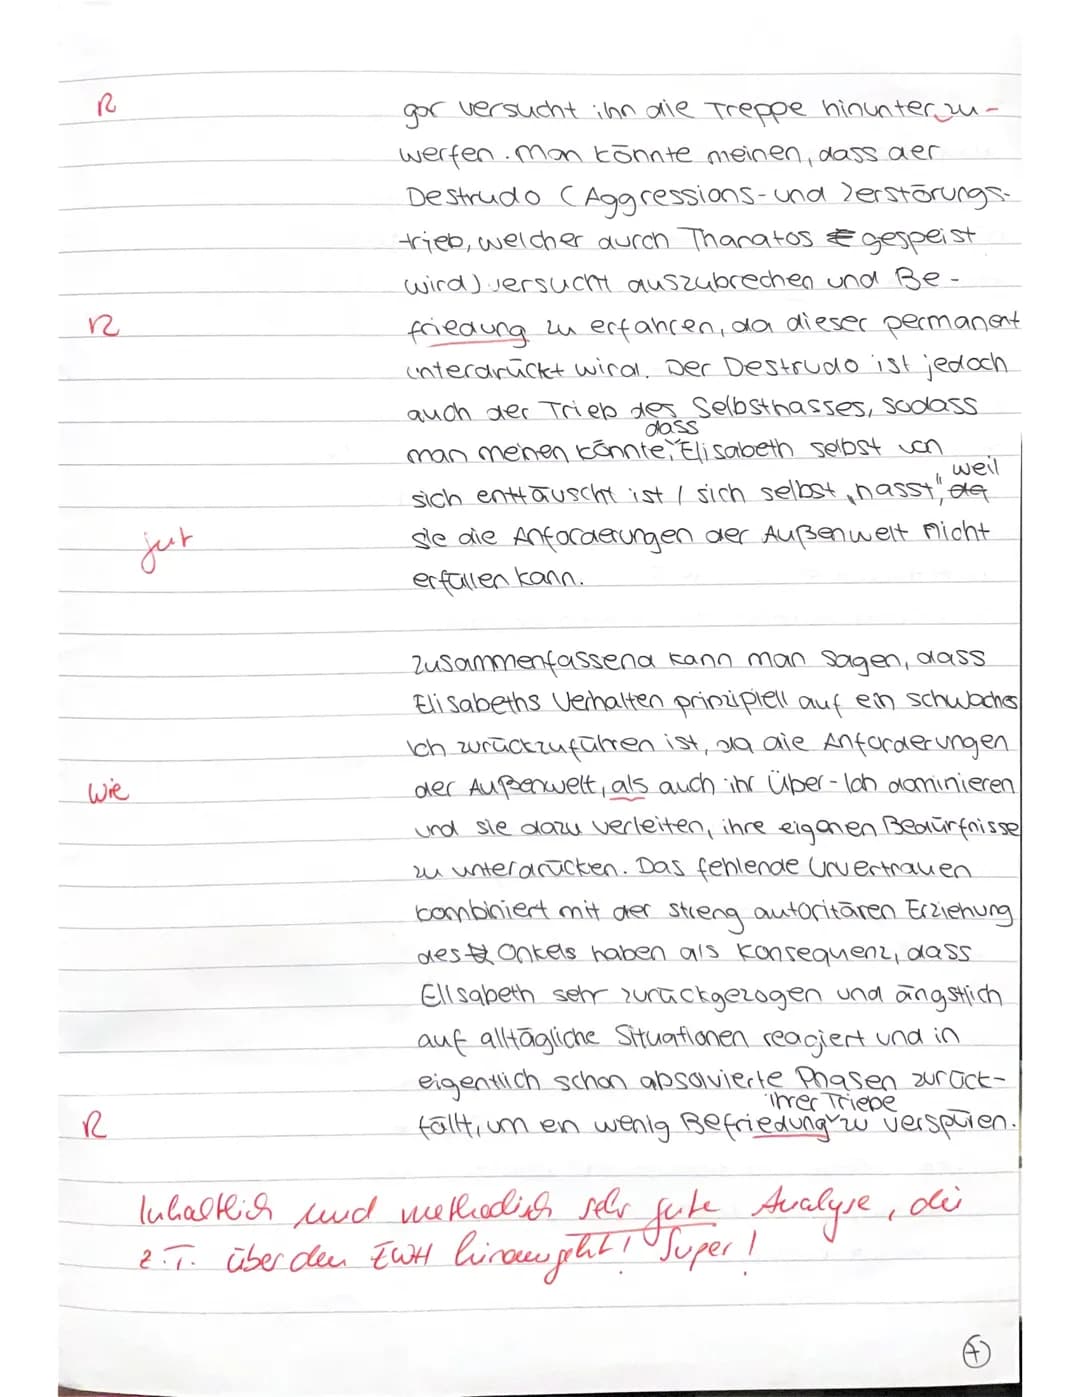 R
gar versucht ihn die Treppe hinunterzu-
werfen. Man könnte meinen, dass der
Destrudo (Aggressions- und Zerstörungs-
trieb, welcher durch Thanatos gespeist
wird) versucht auszubrechen und Be-
R
friedung zu erfahren, da dieser permanent
unterdrückt wird. Der Destrudo ist jedoch
auch der Trieb des Selbsthasses, sodass
dass
man meinen könnte, Elisabeth selbst von
weil
sich enttäuscht ist / sich selbst „hasst", da
jut
sie die Anforderungen der Außenwelt nicht
erfüllen kann.
Zusammenfassend kann man sagen, dass
Elisabeths Verhalten prinzipiell auf ein schwaches
Ich zurückzuführen ist, da die Anforderungen
wie
der Außenwelt, als auch ihr Über-Ich dominieren
und sie dazu verleiten, ihre eigenen Bedürfnisse
zu unterdrücken. Das fehlende Urvertrauen
kombiniert mit der streng autoritären Erziehung
des Onkels haben als Konsequenz, dass
Elisabeth sehr zurückgezogen und ängstlich
auf alltägliche Situationen reagiert und in
eigentlich schon absolvierte Phasen zurück-
ihrer Triebe
R
fällt, um ein wenig Befriedung zu verspüren.
Inhaltlich und methodisch sehr gute Analyse, die
z.T. über den EWH hinausgeht! Super!